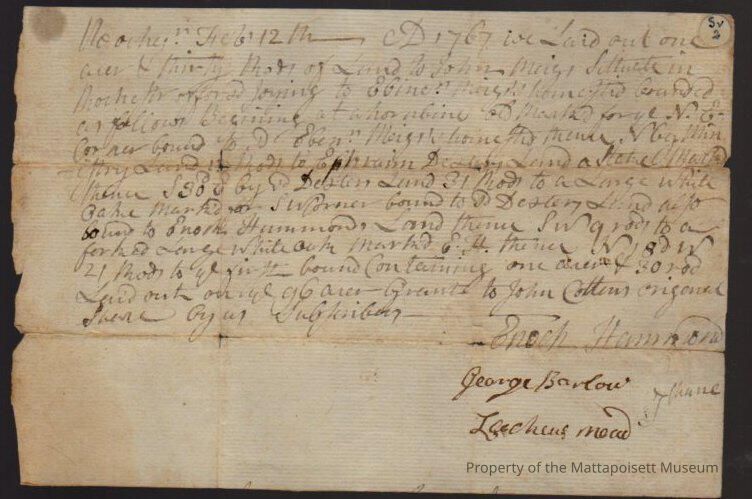 Sv
2
Rochesr Febr 12th AD 1767 we Laid out one
acer & thirty Rods of Land to John Meigs Sittuate in
Rochester joyning to Ebenr Meigs's homested bounded
as follows Begining at a hornbine marked for ye N. E.
Corner bound to sd Ebenr Meigs's homested thence N
Land Rods to Ephraim Dexters Land a Stake Marked
thence S 30 d by sd Dexters Land 31 Rods to a Large white
oake marked for SW Corner bound to sd Dexters Land also
bound to Enoch Hammonds Land thence SW 9 rods to a
forked Large white oak marked E: H. thence N 18 d W
21 Rods to ye first bound Containing one acer & 30 rod
Laid out on ye 96 acer Grant to John Cottens origenel
Shere by us Subscribers
Enoch Hammond
George Barlow
Zacheus mead
Property of the Mattapoisett Museum